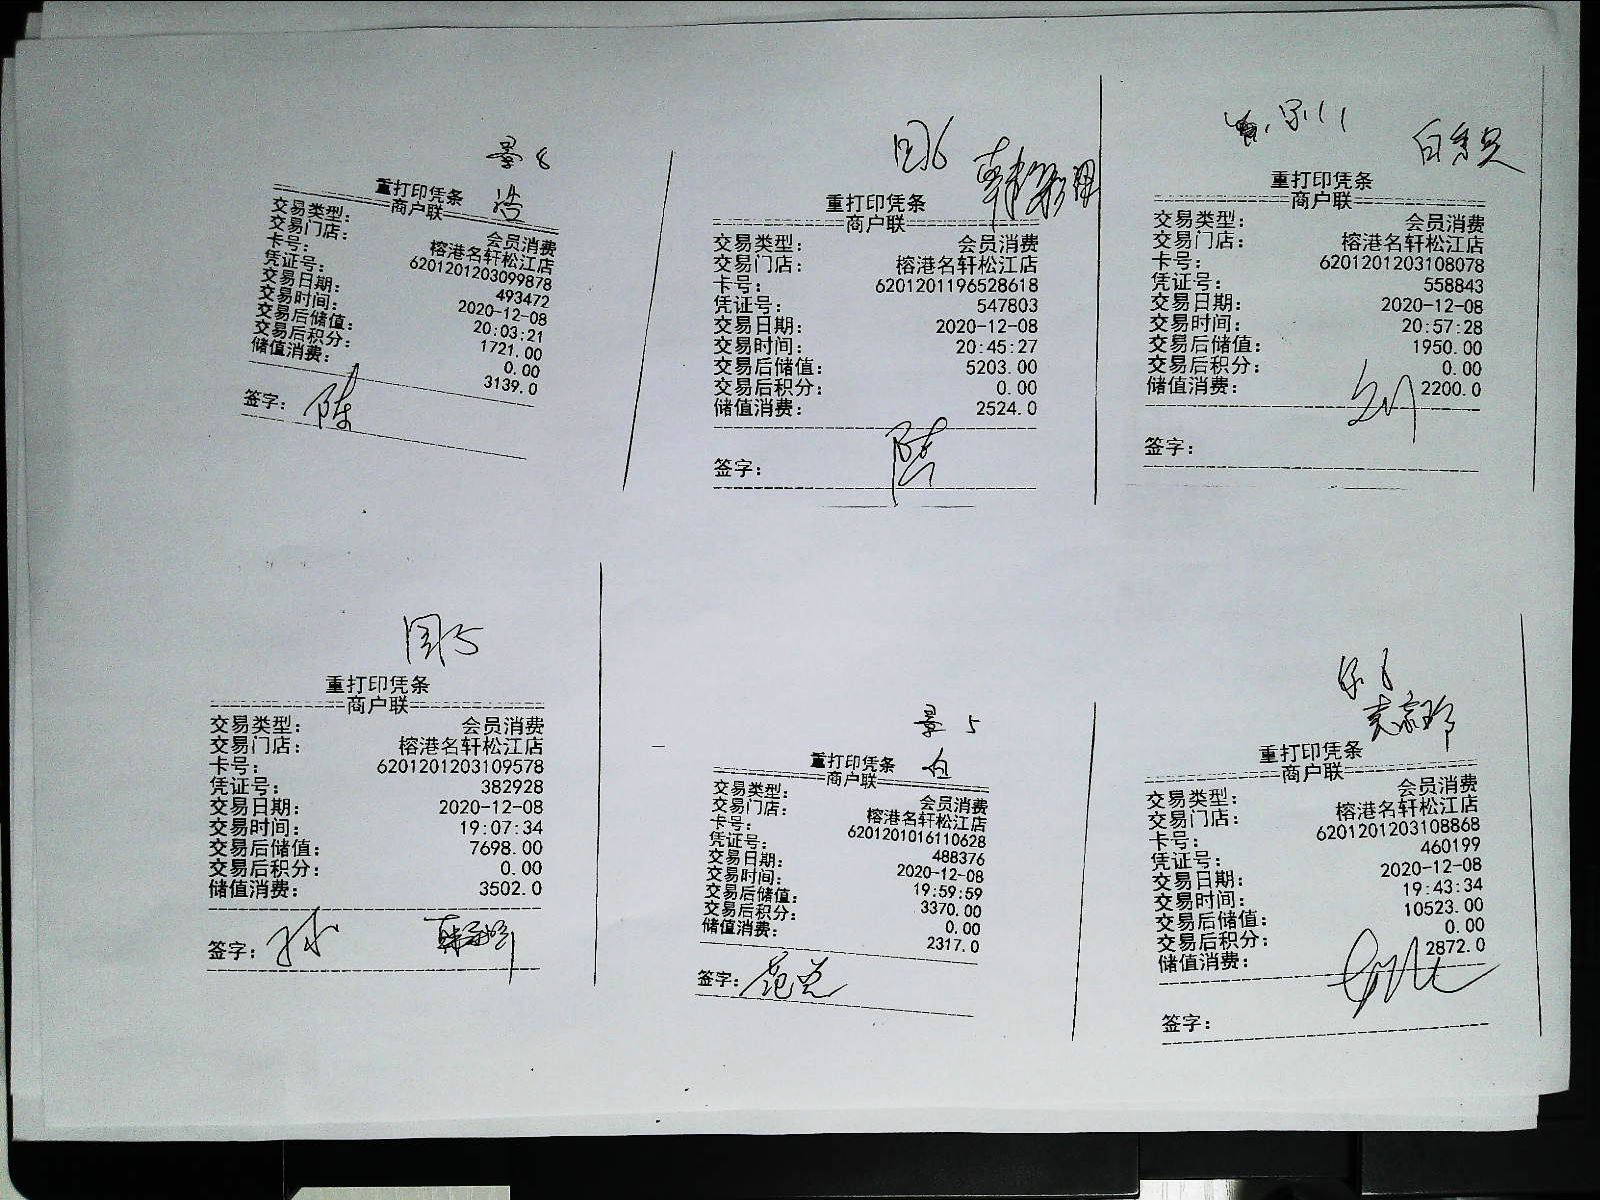 景 8
浩
重打印凭条
商户联
交易类型: 会员消费
交易门店: 榕港名轩松江店
卡号: 6201201203099878
凭证号: 493472
交易日期: 2020-12-08
交易时间: 20:03:21
交易后储值: 1721.00
交易后积分: 0.00
储值消费: 3139.0
签字: 陈
重打印凭条
商户联
交易类型: 会员消费
交易门店: 榕港名轩松江店
卡号: 6201201196528618
凭证号: 547803
交易日期: 2020-12-08
交易时间: 20:45:27
交易后储值: 5203.00
交易后积分: 0.00
储值消费: 2524.0
签字: 陆
重打印凭条
商户联
交易类型: 会员消费
交易门店: 榕港名轩松江店
卡号: 6201201203108078
凭证号: 558843
交易日期: 2020-12-08
交易时间: 20:57:28
交易后储值: 1950.00
交易后积分: 0.00
储值消费: 2200.0
签字:
重打印凭条
商户联
交易类型: 会员消费
交易门店: 榕港名轩松江店
卡号: 6201201203109578
凭证号: 382928
交易日期: 2020-12-08
交易时间: 19:07:34
交易后储值: 7698.00
交易后积分: 0.00
储值消费: 3502.0
签字:
景 5
重打印凭条
商户联
交易类型: 会员消费
交易门店: 榕港名轩松江店
卡号: 6201201016110628
凭证号: 488376
交易日期: 2020-12-08
交易时间: 19:59:59
交易后储值: 3370.00
交易后积分: 0.00
储值消费: 2317.0
签字:
重打印凭条
商户联
交易类型: 会员消费
交易门店: 榕港名轩松江店
卡号: 6201201203108868
凭证号: 460199
交易日期: 2020-12-08
交易时间: 19:43:34
交易后储值: 10523.00
交易后积分: 0.00
储值消费: 2872.0
签字: